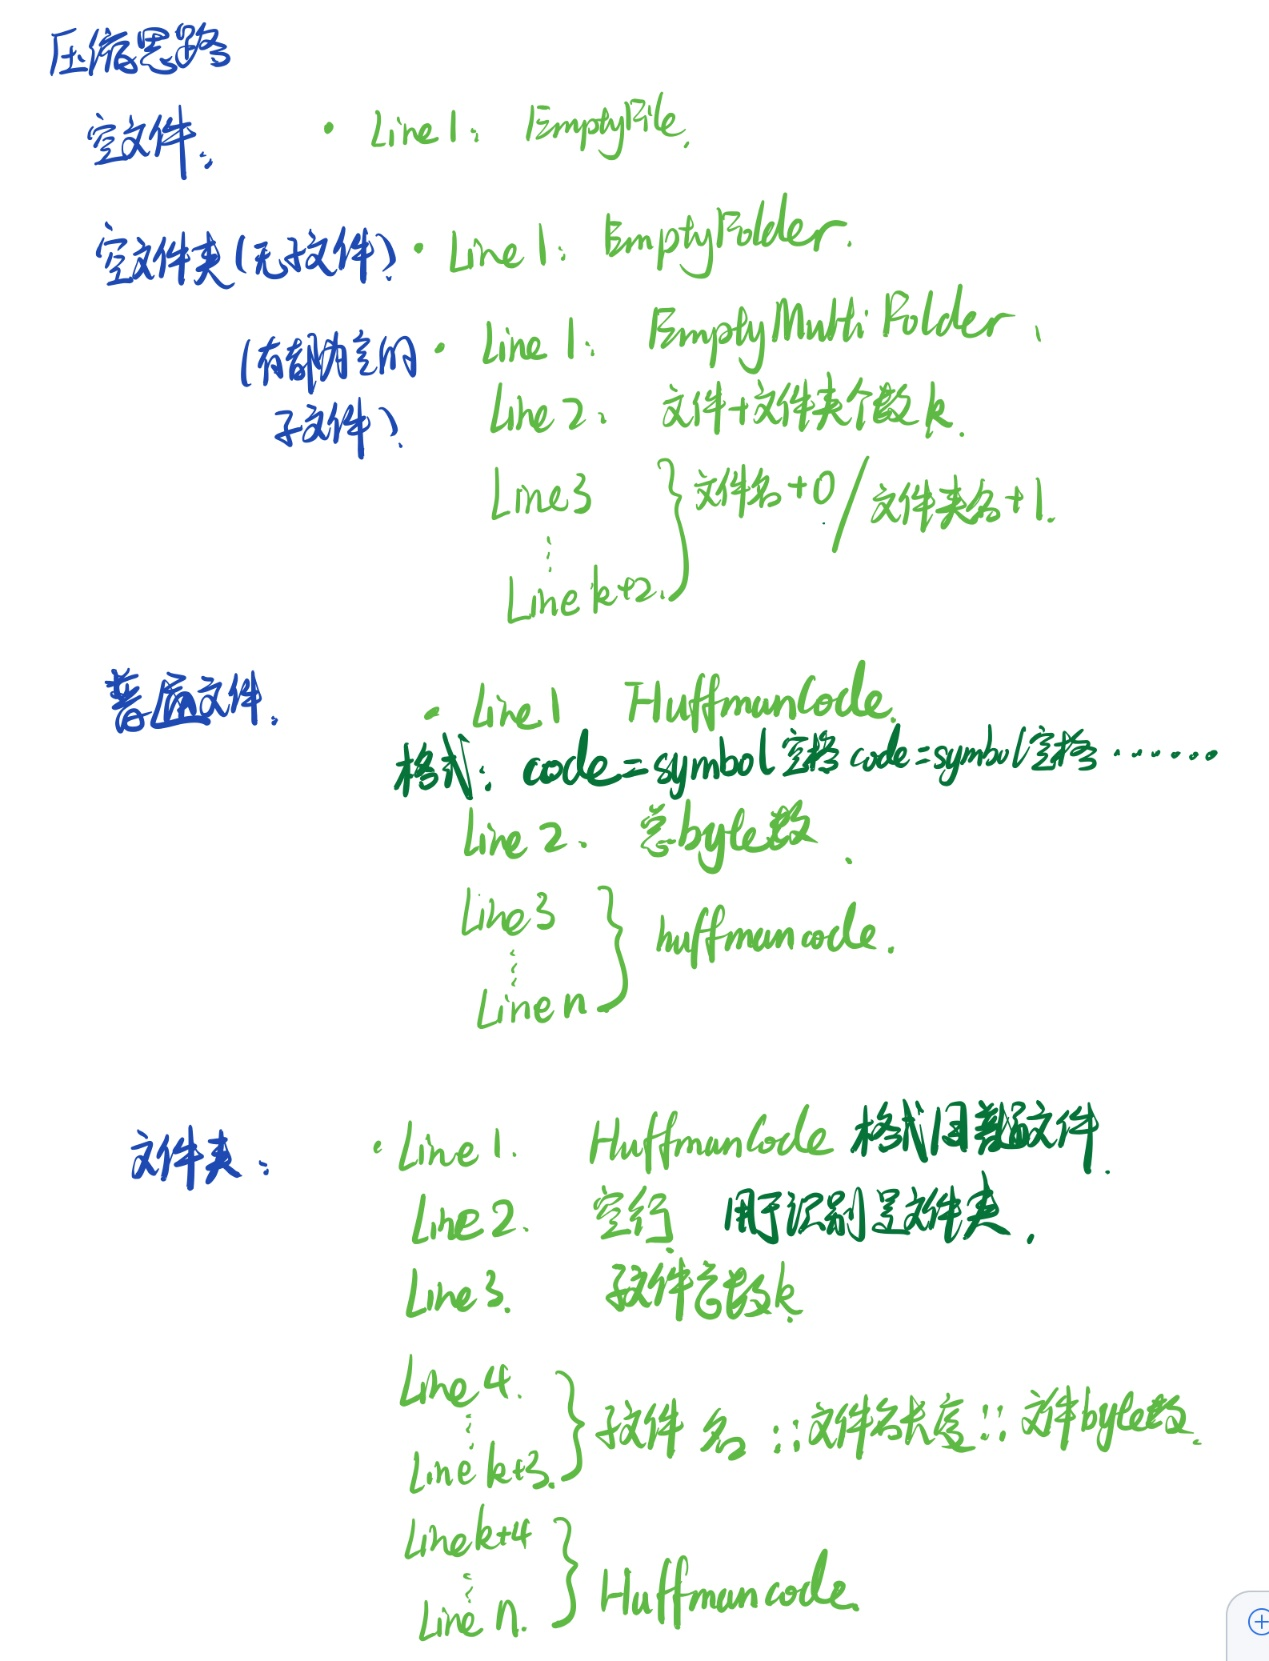 压缩思路
空文件: · Line 1: EmptyFile.
空文件夹(无子文件): · Line 1: EmptyFolder.
(有都为空的 · Line 1: EmptyMultiFolder.
子文件): Line 2: 文件+文件夹个数k.
Line3 } 文件名+0/文件夹名+1.
⋮
Line k+2.
普通文件. · Line 1 HuffmanCode.
格式: code=symbol空格code=symbol空格······
Line 2. 总byte数.
Line3 } huffmancode.
⋮
Line n
文件夹: · Line 1. HuffmanCode 格式同普通文件.
Line 2. 空行 用于识别是文件夹.
Line 3. 子文件总数k.
Line 4. } 子文件名::文件名长度::文件byte数.
⋮
Line k+3.
Line k+4 } Huffmancode.
⋮
Line n.